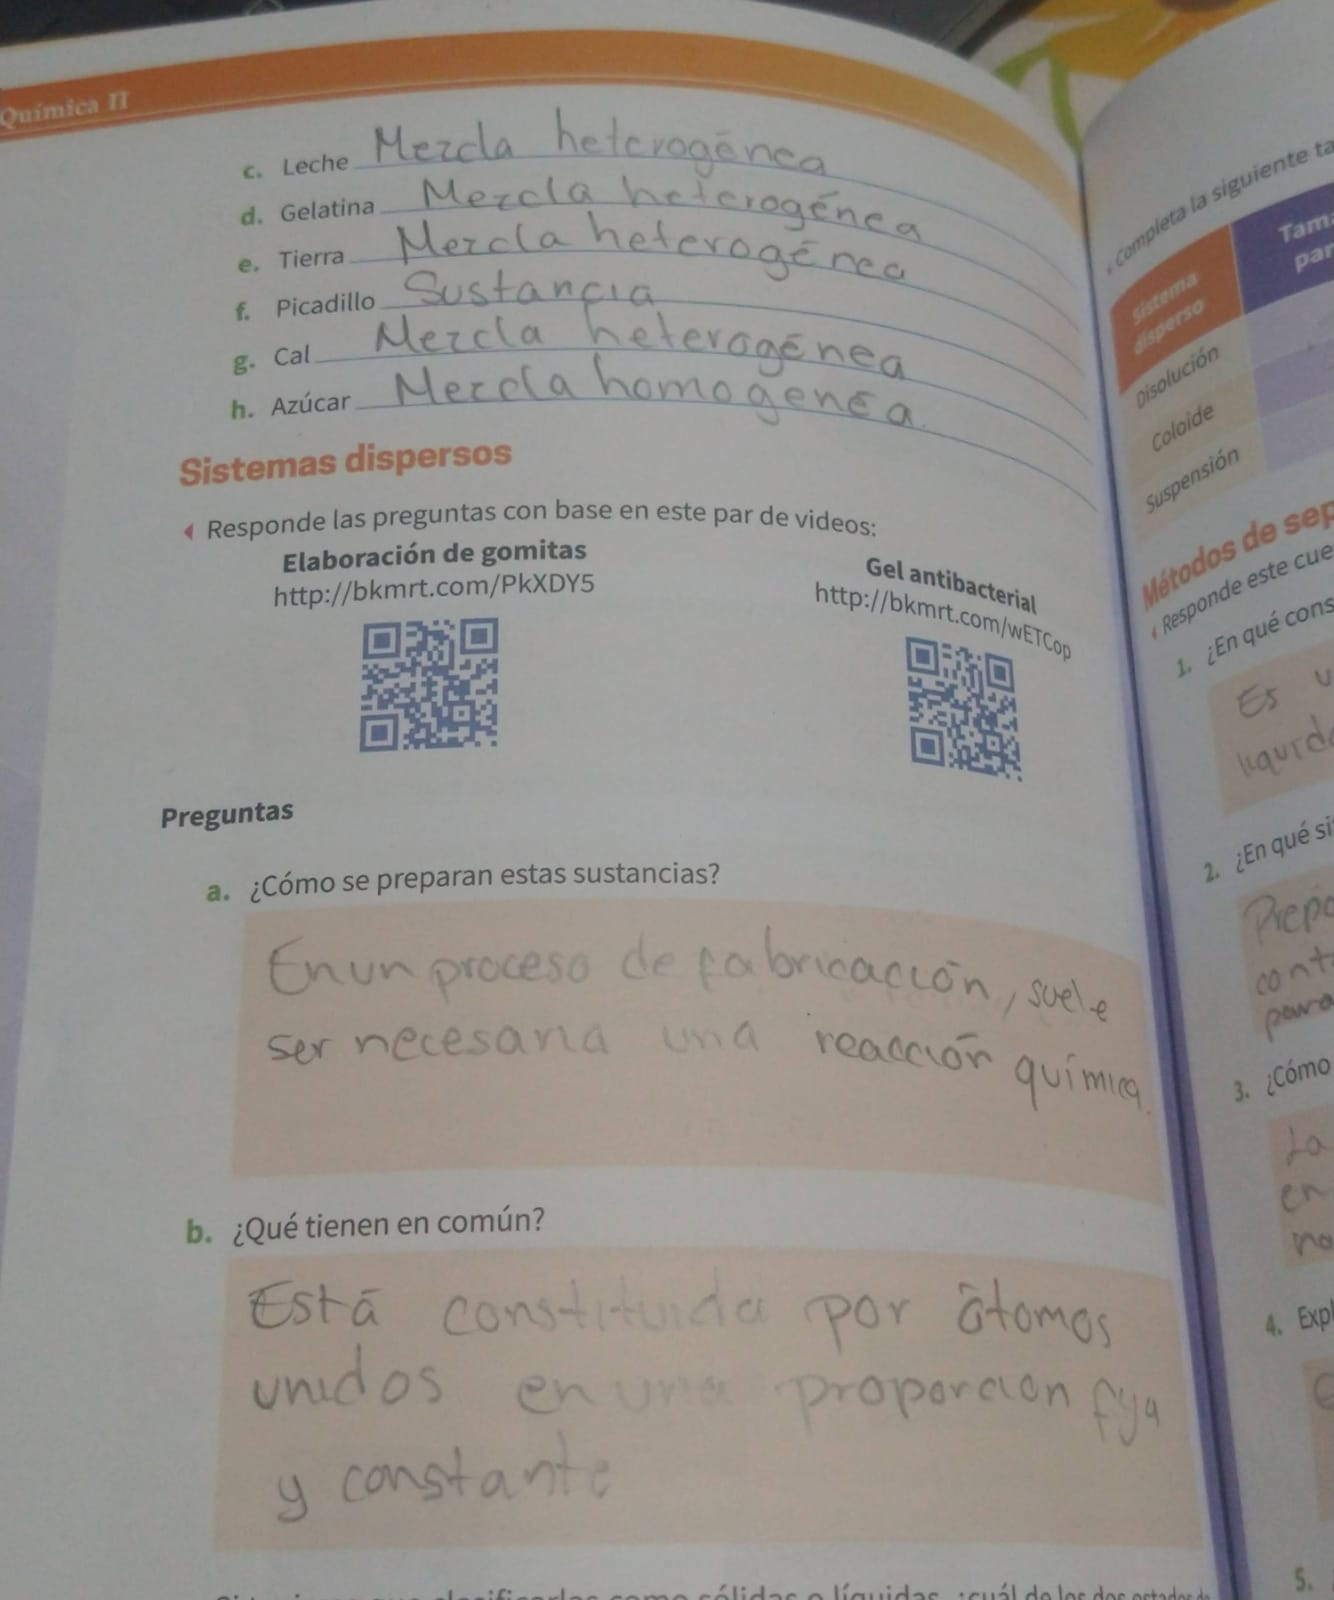 Química II
c. Leche Mezcla heterogénea
d. Gelatina Mezcla heterogénea
e. Tierra Mezcla heterogénea
f. Picadillo Sustancia
g. Cal Mezcla heterogénea
h. Azúcar Mezcla homogenéa.
Sistemas dispersos
Responde las preguntas con base en este par de videos:
Elaboración de gomitas
http://bkmrt.com/PkXDY5
Gel antibacterial
http://bkmrt.com/wETCop
Preguntas
a. ¿Cómo se preparan estas sustancias?
En un proceso de fabricación, suele
ser necesaria una reacción química.
b. ¿Qué tienen en común?
Está constituida por átomos
unidos en una proporcion fija
y constante
Completa la siguiente ta
Sistema
disperso
Tam
par
Disolución
Coloide
Suspensión
Métodos de sep
Responde este cue
1. ¿En qué cons
Es
2. ¿En qué si
3. ¿Cómo
La
en
no
4. Exp
5.